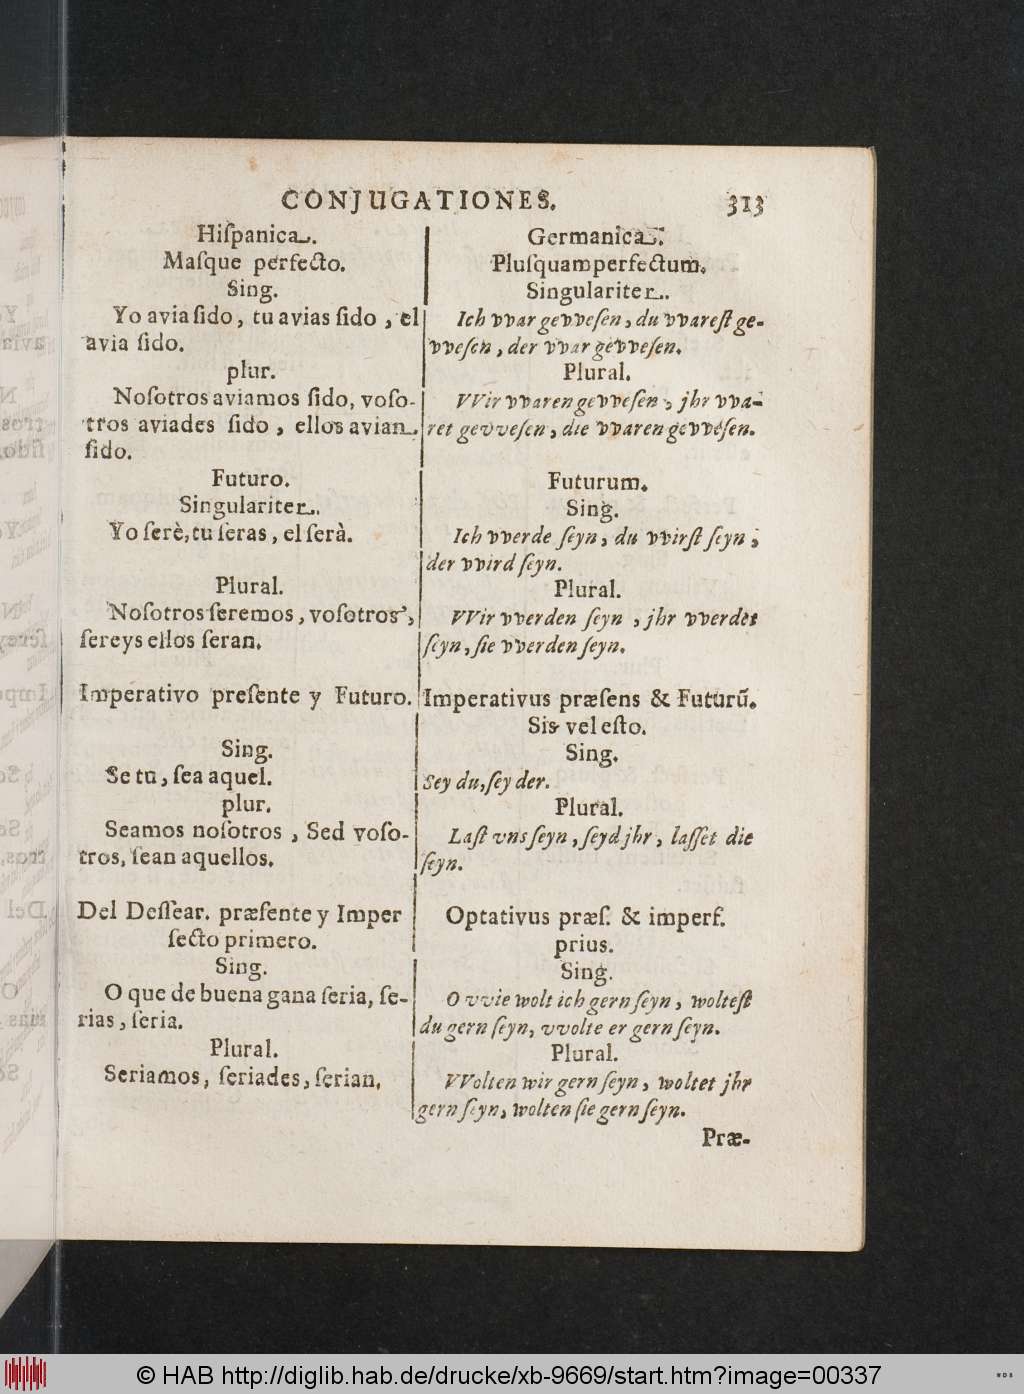 CONJUGATIONES. 313
Hiſpanica.
Maſque perfecto.
Sing.
Yo avia ſido, tu avias ſido, el
avia ſido.
plur.
Noſotros aviamos ſido, voſo-
tros aviades ſido, ellos avian
ſido.
Futuro.
Singulariter.
Yo ſerè, tu ſeras, el ſerà.
Plural.
Noſotros ſeremos, voſotros,
ſereys ellos ſeran.
Imperativo preſente y Futuro.
Sing.
Se tu, ſea aquel.
plur.
Seamos noſotros, Sed voſo-
tros, ſean aquellos.
Del Deſſear. præſente y Imper
fecto primero.
Sing.
O que de buena gana ſeria, ſe-
rias, ſeria.
Plural.
Seriamos, ſeriades, ſerian.
Germanica.
Pluſquamperfectum.
Singulariter.
Ich vvar gevveſen, du vvareſt ge-
vveſen, der vvar gevveſen.
Plural.
VVir vvaren gevveſen, jhr vva-
ret gevveſen, die vvaren gevveſen.
Futurum.
Sing.
Ich vverde ſeyn, du vvirſt ſeyn,
der vvird ſeyn.
Plural.
VVir vverden ſeyn, jhr vverdet
ſeyn, ſie vverden ſeyn.
Imperativus præſens & Futurũ.
Sis vel eſto.
Sing.
Sey du, ſey der.
Plural.
Laſt vns ſeyn, ſeyd jhr, laſſet die
ſeyn.
Optativus præſ. & imperf.
prius.
Sing.
O vvie wolt ich gern ſeyn, wolteſt
du gern ſeyn, vvolte er gern ſeyn.
Plural.
VVolten wir gern ſeyn, woltet jhr
gern ſeyn, wolten ſie gern ſeyn.
Præ-
© HAB http://diglib.hab.de/drucke/xb-9669/start.htm?image=00337